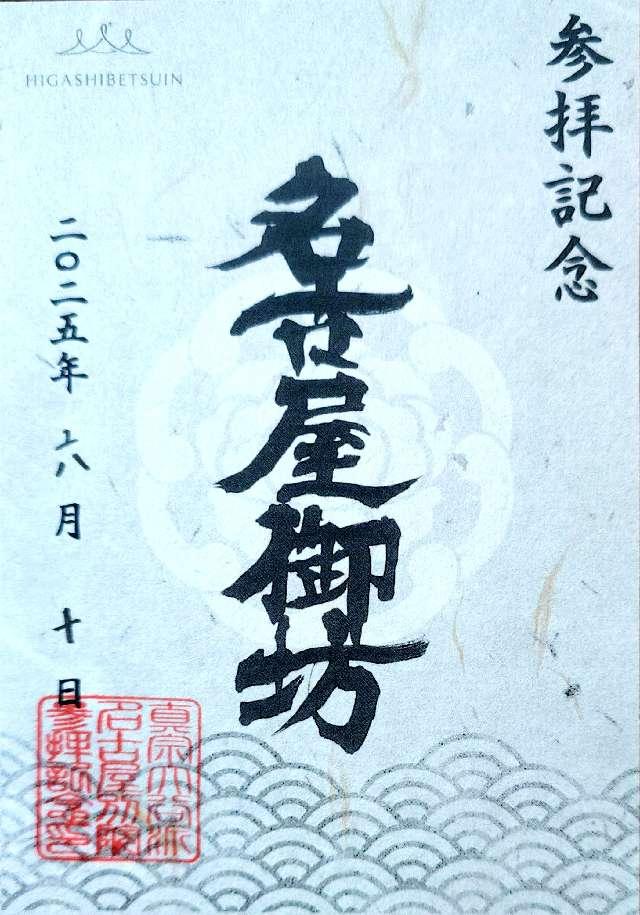 HIGASHIBETSUIN
参拝記念
名古屋御坊
二〇二五年 六月 十日
真宗大谷派
名古屋別院
参拝記念印